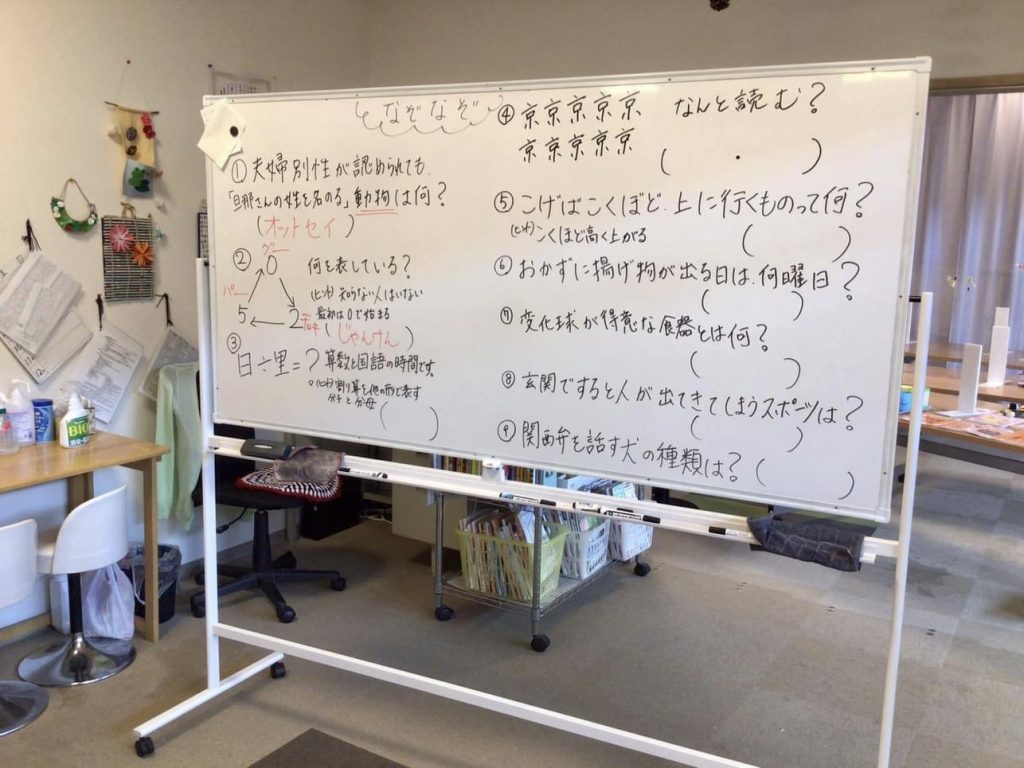 なぞなぞ
① 夫婦別性が認められても、
「旦那さんの姓を名のる」動物は何？
(オットセイ)
②
グー
0
何を表している？
パー
(ヒント)知らない人はいない
最初は0で始まる
5
2
チョキ
(じゃんけん)
③
日÷里=？ 算数と国語の時間です。
○(ヒント)割り算を他の形で表す
分子と分母
( )
④ 京京京京京 なんと読む？
京京京京京
( ・ )
⑤ こげばこぐほど、上に行くものって何？
(ヒント)こくほど高く上がる
( )
⑥ おかずに揚げ物が出る日は、何曜日？
( )
⑦ 変化球が得意な食器とは何？
( )
⑧ 玄関ですると人が出てきてしまうスポーツは？
( )
⑨ 関西弁を話す犬の種類は？( )
BIO